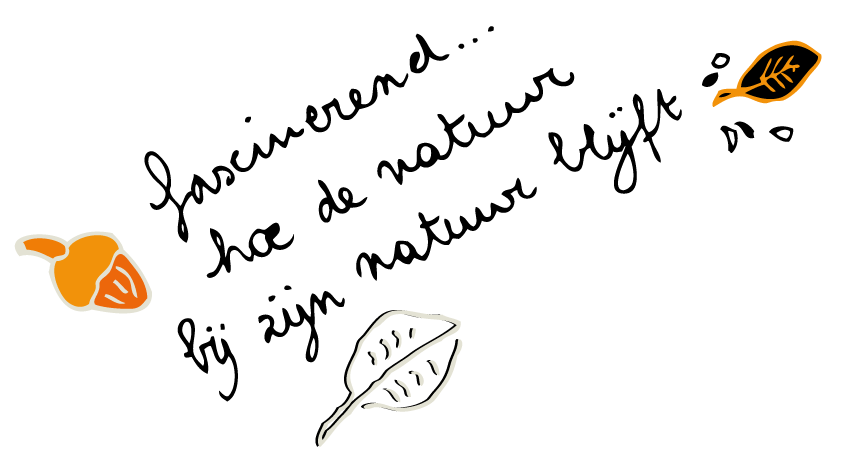 fascinerend...
hoe de natuur
bij zijn natuur blijft